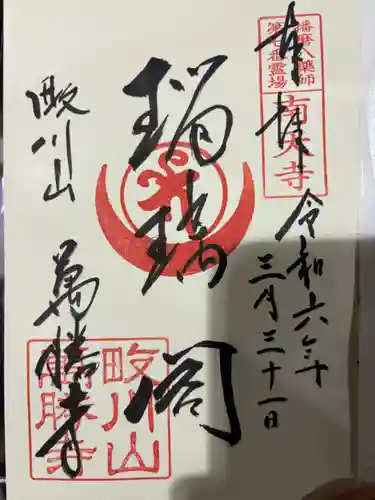 奉拝
播磨八薬師
第七番霊場
令和六年
三月三十一日
瑠璃閣
畈川山
萬勝寺
畈川山
萬勝寺